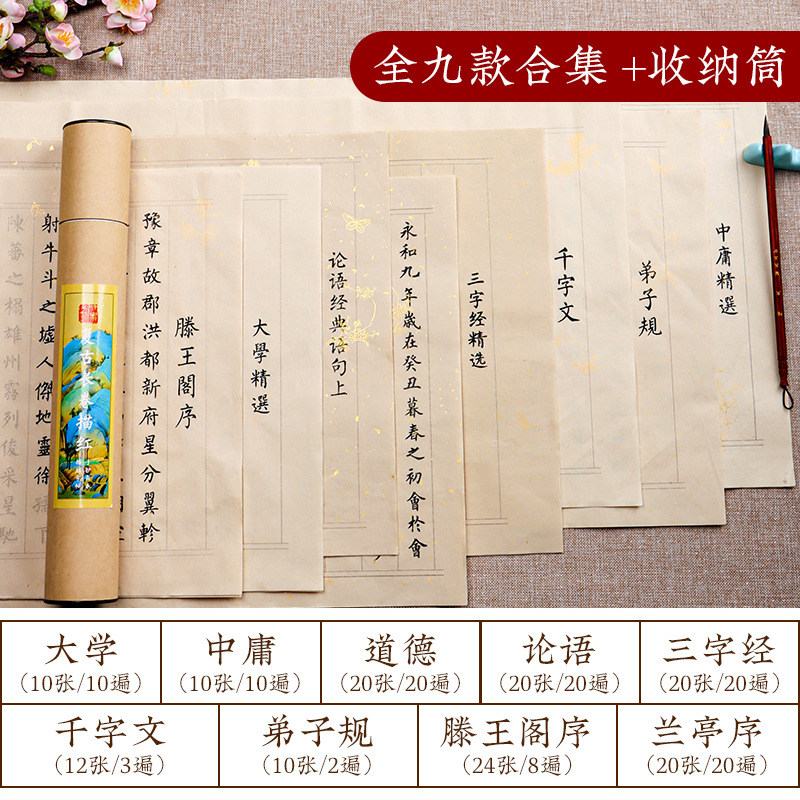 全九款合集 +收纳筒
中庸精選
弟子規
千字文
三字经精选
永和九年歲在癸丑暮春之初會於會
论语经典语句上
大學精選
滕王閣序
豫章故郡洪都新府星分翼軫
射牛斗之墟人傑地靈徐孺下
陳蕃之榻雄州霧列俊采星馳
复古长卷描红
大学
（10张/10遍）
中庸
（10张/10遍）
道德
（20张/20遍）
论语
（20张/20遍）
三字经
（20张/20遍）
千字文
（12张/3遍）
弟子规
（10张/2遍）
滕王阁序
（24张/8遍）
兰亭序
（20张/20遍）